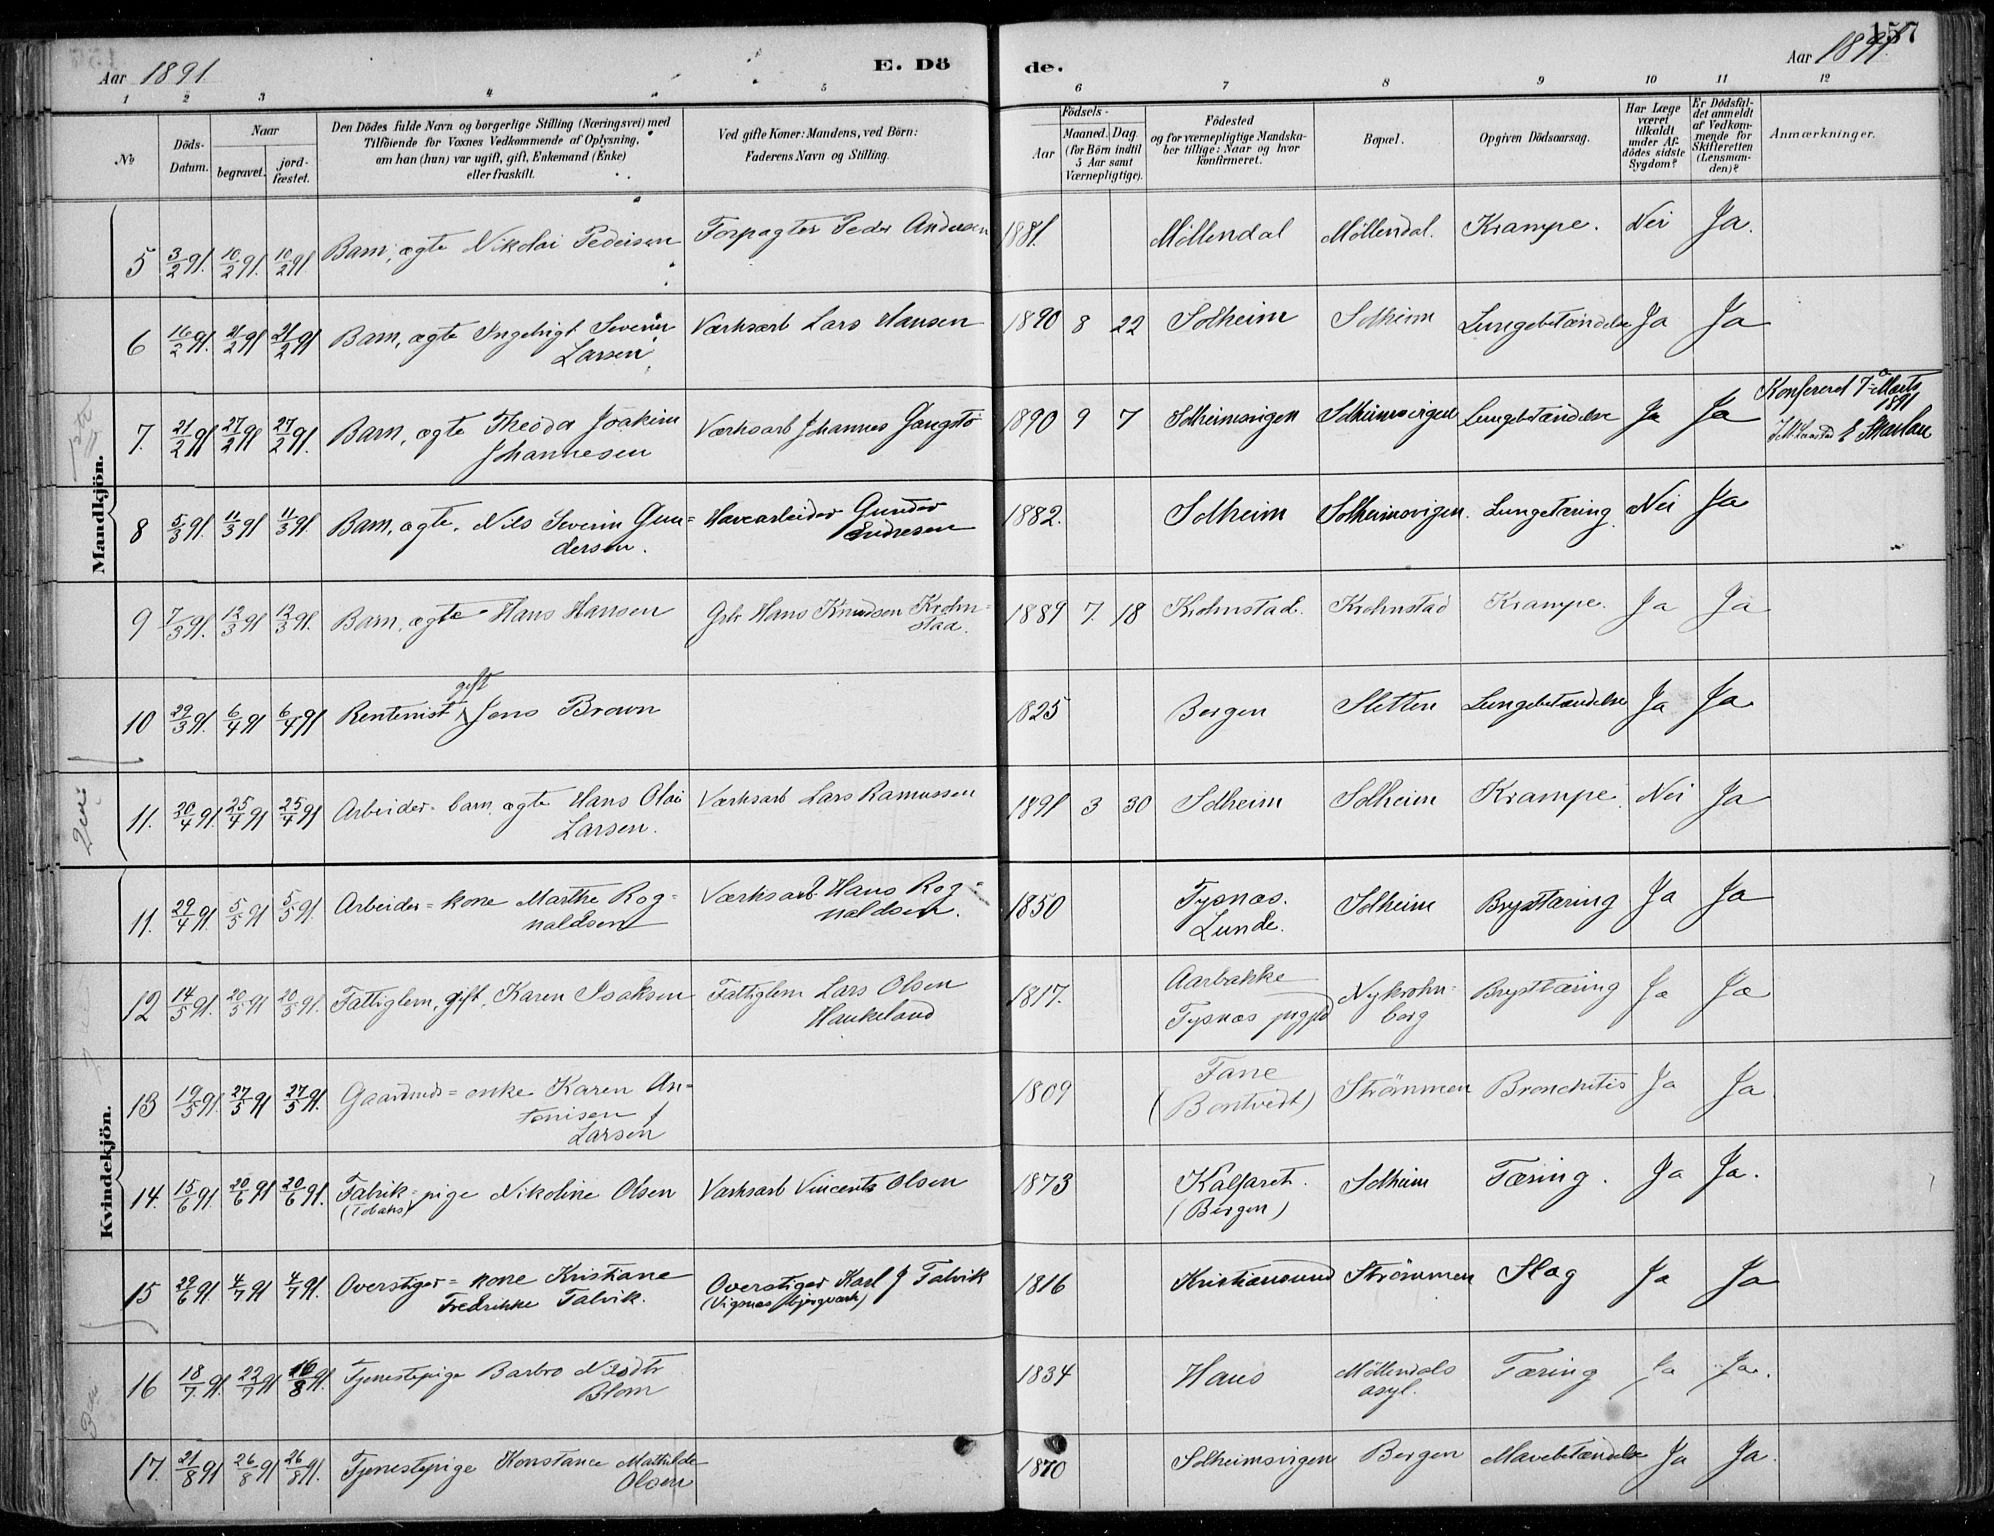 157
Aar 1891
E. Dö
de.
Aar 1891
1 2 3 4 5 6 7 8 9 10 11 12
No
Döds-
Datum.
Naar
begravet.
jord-
fæstet.
Den Dödes fulde Navn og borgerlige Stilling (Næringsvei) med
Tilföiende for Voxnes Vedkommende af Oplysning,
om han (hun) var ugift, gift, Enkemand (Enke)
eller fraskilt.
Ved gifte Koner: Mandens, ved Börn:
Faderens Navn og Stilling.
Födsels-
Aar
Maaned. Dag
(for Börn indtil
5 Aar samt
Værnepligtige).
Födested
og for værnepligtige Mandska-
ber tillige: Naar og hvor
konfirmeret.
Bopæl.
Opgiven Dödsaarsag.
Har Læge
været
tilkaldt
under Af-
dödes sidste
Sygdom?
Er Dödsfal-
det anmeldt
af Vedkom-
mende for
Skifteretten
(Lensman-
den)?
Anmærkninger.
Mandkjön.
5 3/2 91. 10/2 91. 10/2 91 Barn, ægte Nikolai Pedersen Forpagter Peder Andersen 1881. Möllendal Möllendal. Krampe. Nei Ja.
6 16/2 91. 21/2 91 21/2 91 Barn, ægte Ingebrigt Severin Værksarb Lars Hansen 1890 8 22 Solheim Solheim Lungebetændelse Ja Ja
Larsen
7. 21/2 91 27/2 91 27/2 91. Barn, ægte Theodor Joakim Værksarb Johannes Gangstö 1890 9 7 Solheimsvigen Solheimsvigen Lungebetændelse Ja Ja Konfereret 7de Marts
Johannesen 1891
8 5/3 91. 11/3 91 11/3 91 Barn, ægte. Nils Severin Gun= Havearbeider Gunder 1882. Solheim Solheimsvigen. Lungetæring. Nei Ja
dersen. Endresen
9 7/3 91. 12/3 91 12/3 91. Barn, ægte Hans Hansen Gbr Hans Knudsen Krohn= 1889 7. 18 Krohnstad. Krohnstad Krampe. Ja Ja
stad.
gift
10 29/3 91. 6/4 91 6/4 91 Rentenist Jens Brown 1825 Bergen Sletten Lungebetændelse Ja Ja
11. 20/4 91. 25/4 91 25/4 91 Arbeider= barn, ægte Hans Olai Værksarb Lars Rasmussen 1891 3 30 Solheim Solheim Krampe. Nei Ja
Larsen.
Kvindekjön.
11. 29/4 91. 5/5 91 5/5 91. Arbeider= kone Marthe Rog= Værksarb. Hans Rog= 1850 Tysnæs. Solheim Brysttæring Ja Ja
naldsen naldsen. Lunde.
12 14/5 91. 20/5 91 20/5 91. Fattiglem, gift, Karen Isaksen Fattiglem Lars Olsen 1817. Aarbakke Nykrohn= Brysttæring Ja Ja
Haukeland Tysnæs prgjld borg
13 19/5 91. 27/5 91 27/5 91. Gaardmds= enke Karen An= 1809 Fane Strömmen Bronchitis Ja Ja
tonisen (Bontvedt)
Larsen
14. 15/6 91. 20/6 91 20/6 91. Fabrik= pige Nikoline Olsen Værksarb Vincents Olsen 1873 Kalfaret. Solheim Tæring. Ja Ja.
(Tobaks) (Bergen)
15 29/6 91 4/7 91 4/7 91. Overstiger= kone Kristiane Overstiger Karl J Talvik 1816 Kristiansund Strömmen Slag Ja Ja
Fredrikke Talvik. (Vigsnæs bjergværk)
16 18/7 91. 22/7 91 16/8 91. Tjenestepige Barbro Nilsdtr 1834 Haus Möllendals Tæring Ja Ja.
Blom asyl.
17. 21/8 91 26/8 91 26/8 91. Tjenestepige Konstance Mathilde 1870 Solheimsvigen Bergen Mavebetændelse Ja Ja.
Olsen